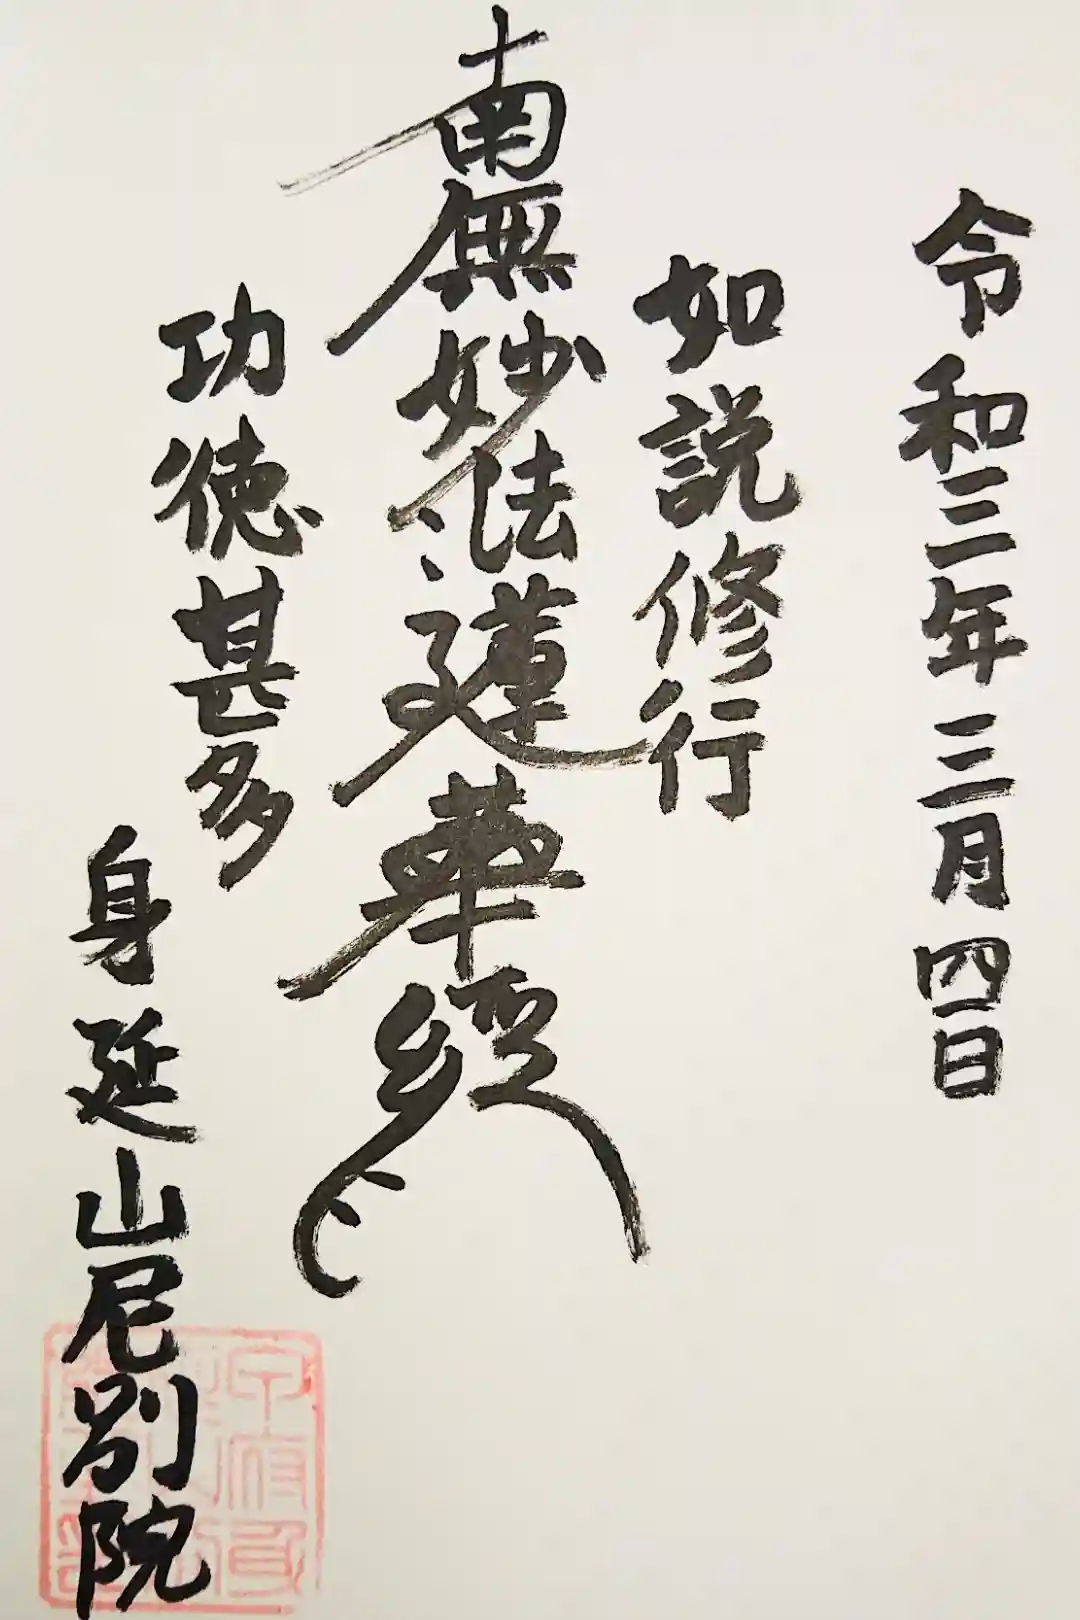 令和三年三月四日
如説修行
南無妙法蓮華経
功徳甚多
身延山尼別院